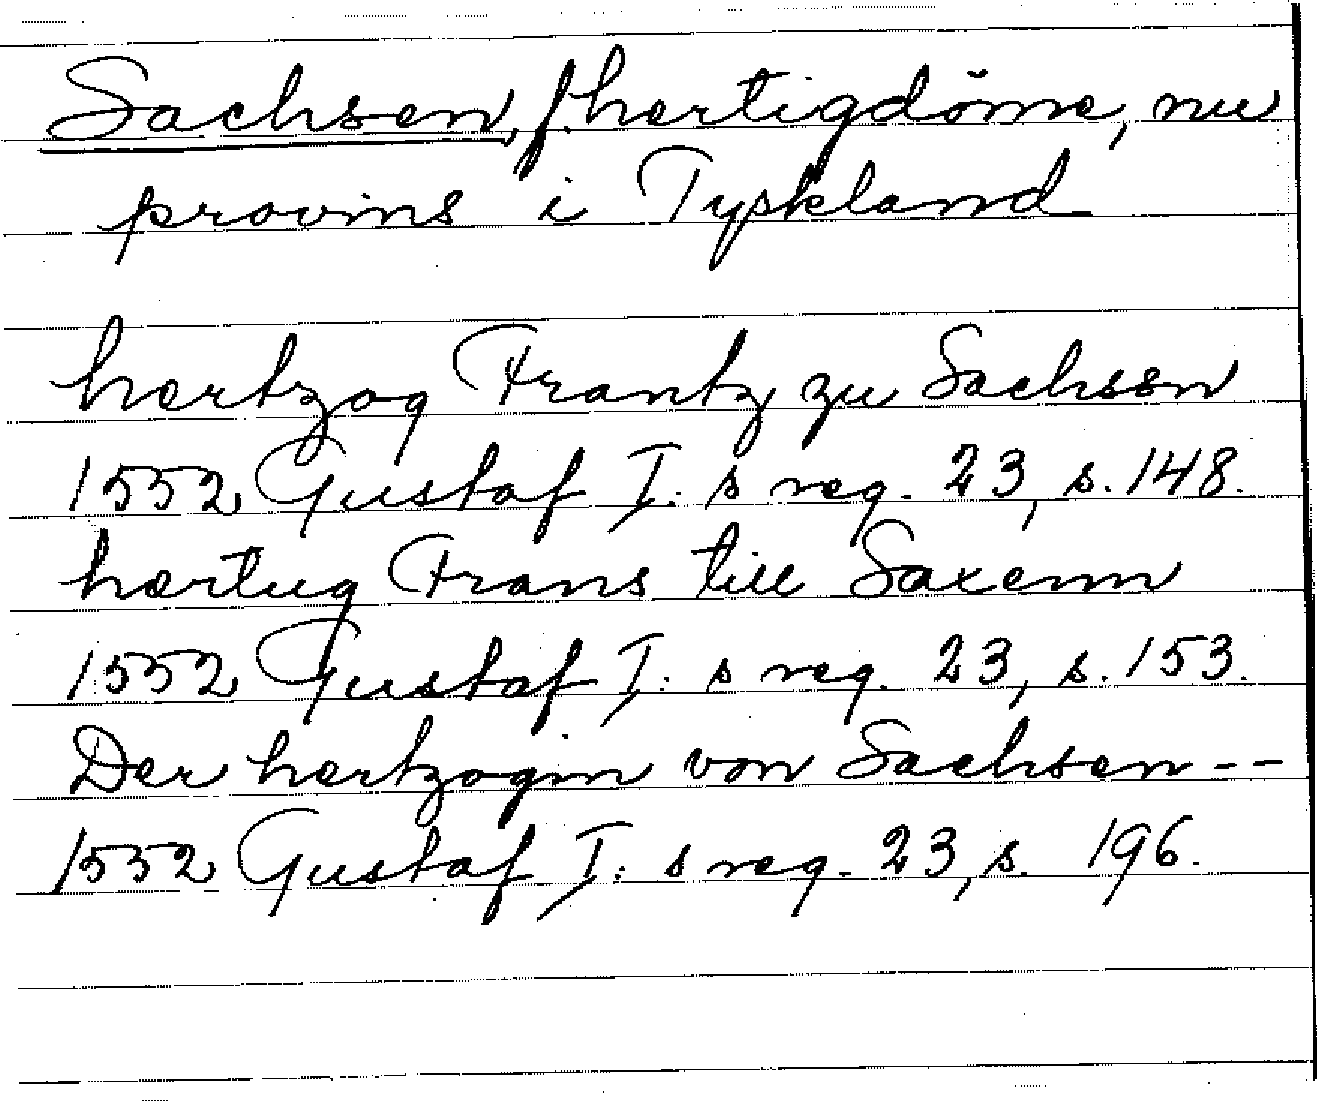 Sachsen, f. hertigdöme, nu
provins i Tyskland
hertzog Frantz zu Sachssn
1552 Gustaf I:s reg. 23, s. 148.
hertug Frans till Saxenn
1552 Gustaf I:s reg. 23, s. 153.
Der hertzogin von Sachsen --
1552 Gustaf I:s reg. 23, s. 196.